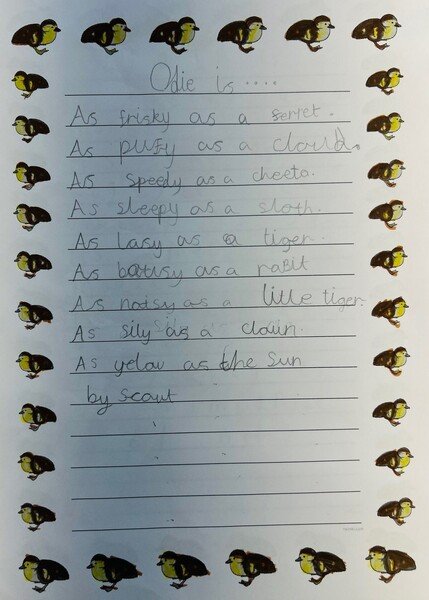 Odie is ....
As frisky as a ferret.
As pufy as a cloud.
As speedy as a cheeta.
As sleepy as a sloth.
As lasy as a tiger.
As batusy as a rabit
As noisy as a little tiger.
As sily as a clown.
As yelow as the Sun
by Scout